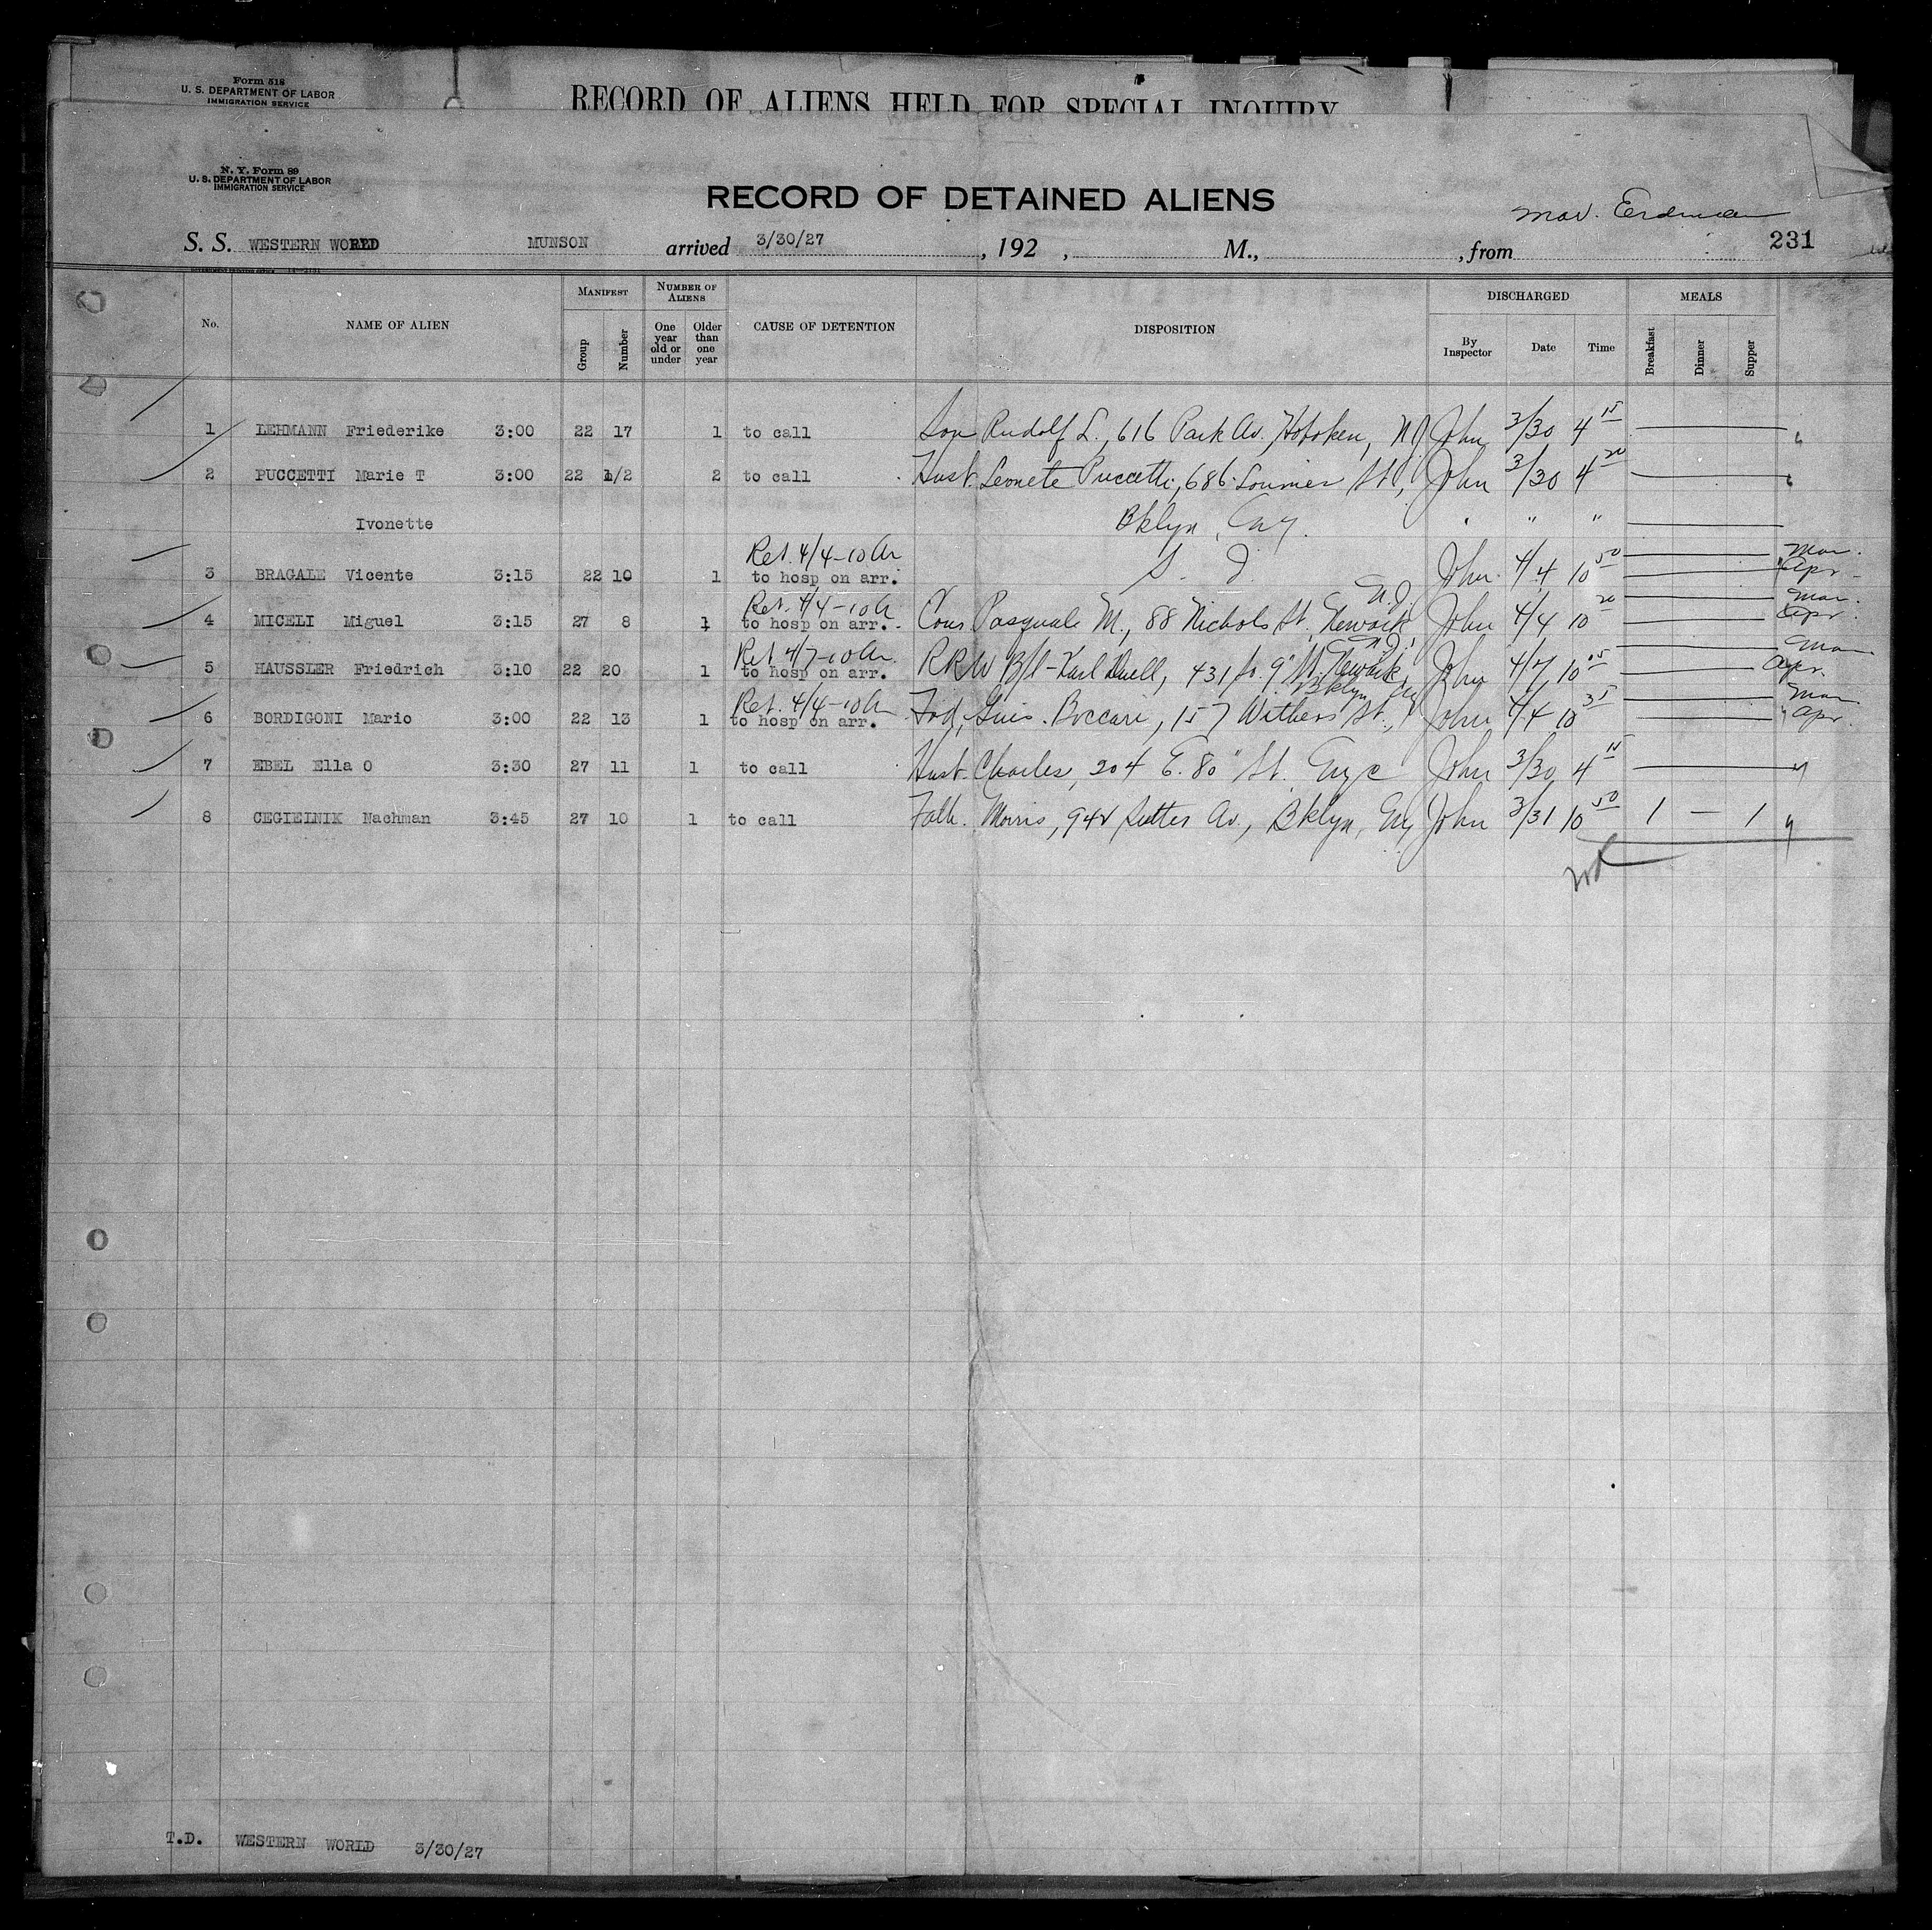 Form 518
U. S. DEPARTMENT OF LABOR
IMMIGRATION SERVICE
RECORD OF ALIENS HELD FOR SPECIAL INQUIRY
N. Y. Form 89
U. S. DEPARTMENT OF LABOR
IMMIGRATION SERVICE
RECORD OF DETAINED ALIENS
Erdman
S. S. WESTERN WORLD MUNSON arrived 3/30/27 , 192 , M., , from 231
No. NAME OF ALIEN MANIFEST Group Number NUMBER OF ALIENS One year old or under Older than one year CAUSE OF DETENTION DISPOSITION DISCHARGED By Inspector Date Time MEALS Breakfast Dinner Supper
1 LEHMANN Friederike 3:00 22 17 1 to call Son Rudolf L., 616 Park Av, Hoboken, NJ John 3/30 4 15
2 PUCCETTI Marie T 3:00 22 1/2 2 to call Husb. Puccetti, 686 St, John 3/30 4 20
Ivonette Bklyn, Ny. " " "
Ret. 4/4-10 Am
3 BRAGALE Vicente 3:15 22 10 1 to hosp on arr. S. I. John 4/4 10 50 Mar. Apr
Ret. 4/4-10 A N.J.
4 MICELI Miguel 3:15 27 8 1 to hosp on arr. Cous Pasquale M., 88 Nichols St, Newark, John 4/4 10 20 Mar. Apr.
Ret 4/7-10 Am. N.J.
5 HAUSSLER Friedrich 3:10 22 20 1 to hosp on arr. Karl 431 So. 9" St, Newark, John 4/7 10 15 Mar Apr.
Ret. 4/4-10 Am Bklyn, Ny
6 BORDIGONI Mario 3:00 22 13 1 to hosp on arr. Boccari, 157 Withers St., John 4/4 10 35 Mar Apr.
7 EBEL Ella O 3:30 27 11 1 to call Husb. Charles, 204 E. 80" St. Nyc John 3/30 4 15
8 CEGIELNIK Nachman 3:45 27 10 1 to call Fath. Morris, 942 Sutter Av., Bklyn, Ny John 3/31 10 50 1 — 1
T.D. WESTERN WORLD 3/30/27